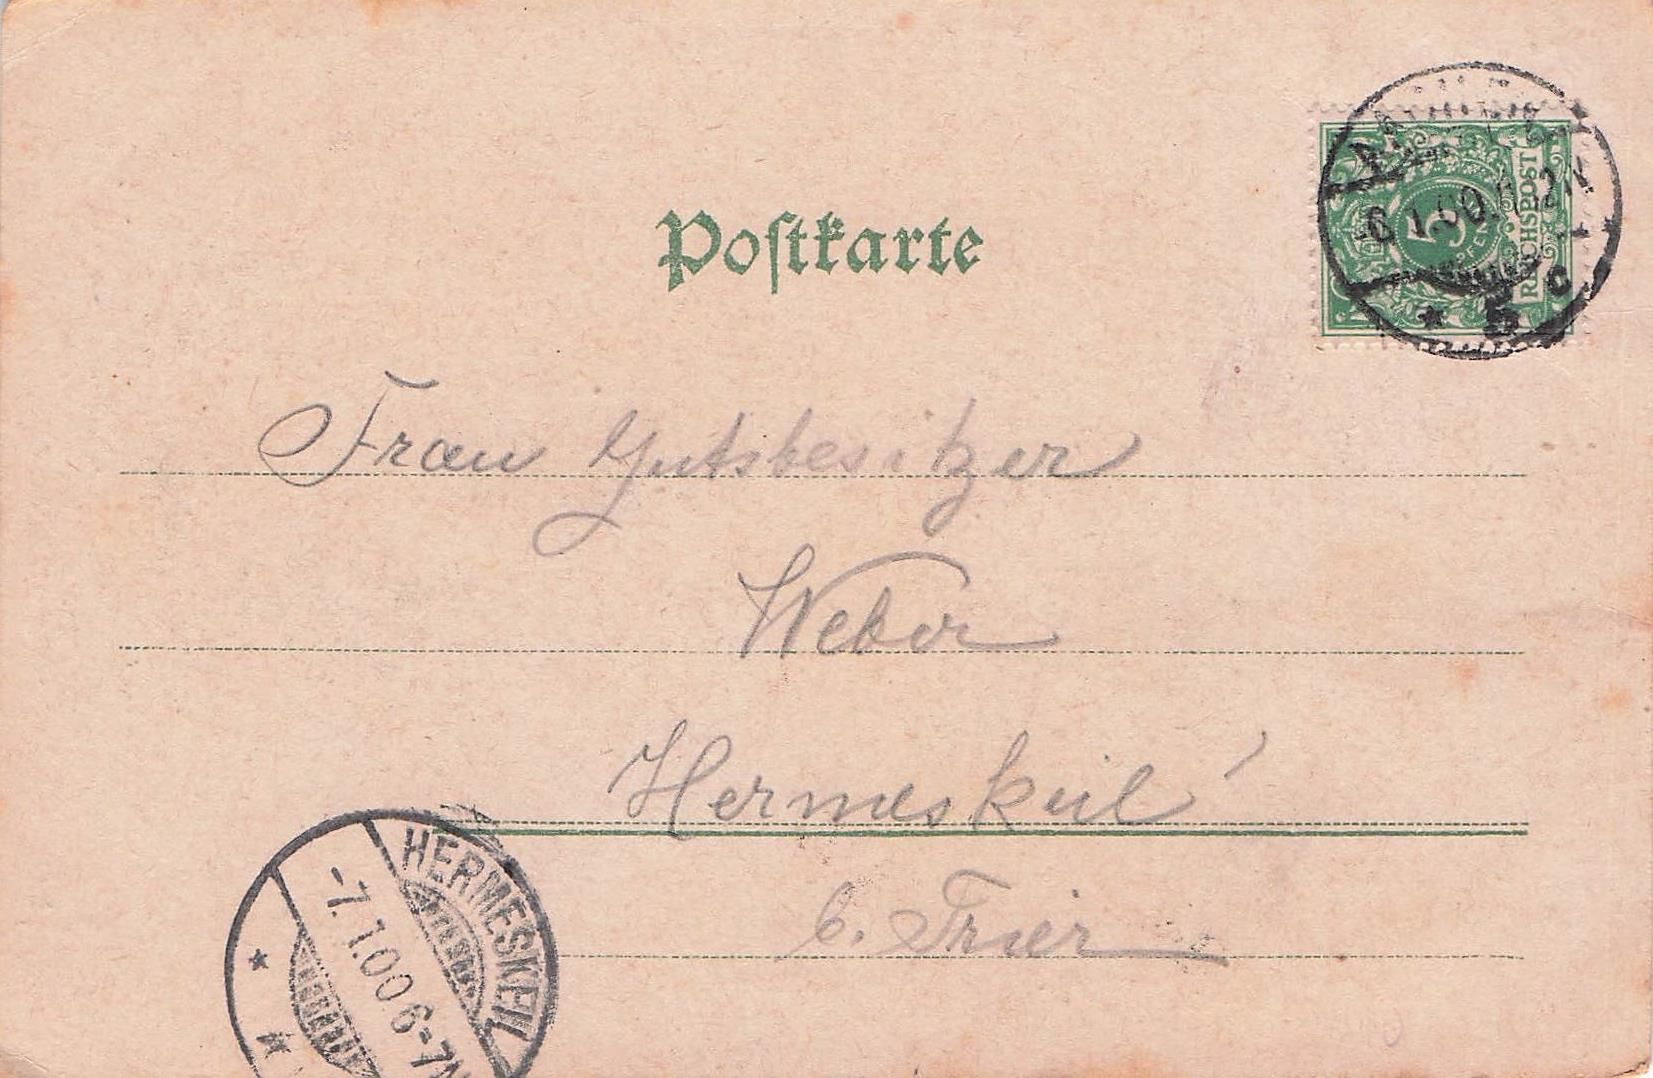 Postkarte
REICHSPOST
5
5 c
Frau Gutsbesitzer
Weber
Hermeskeil
b. Trier
HERMESKEIL
-7.1.00.6-7N